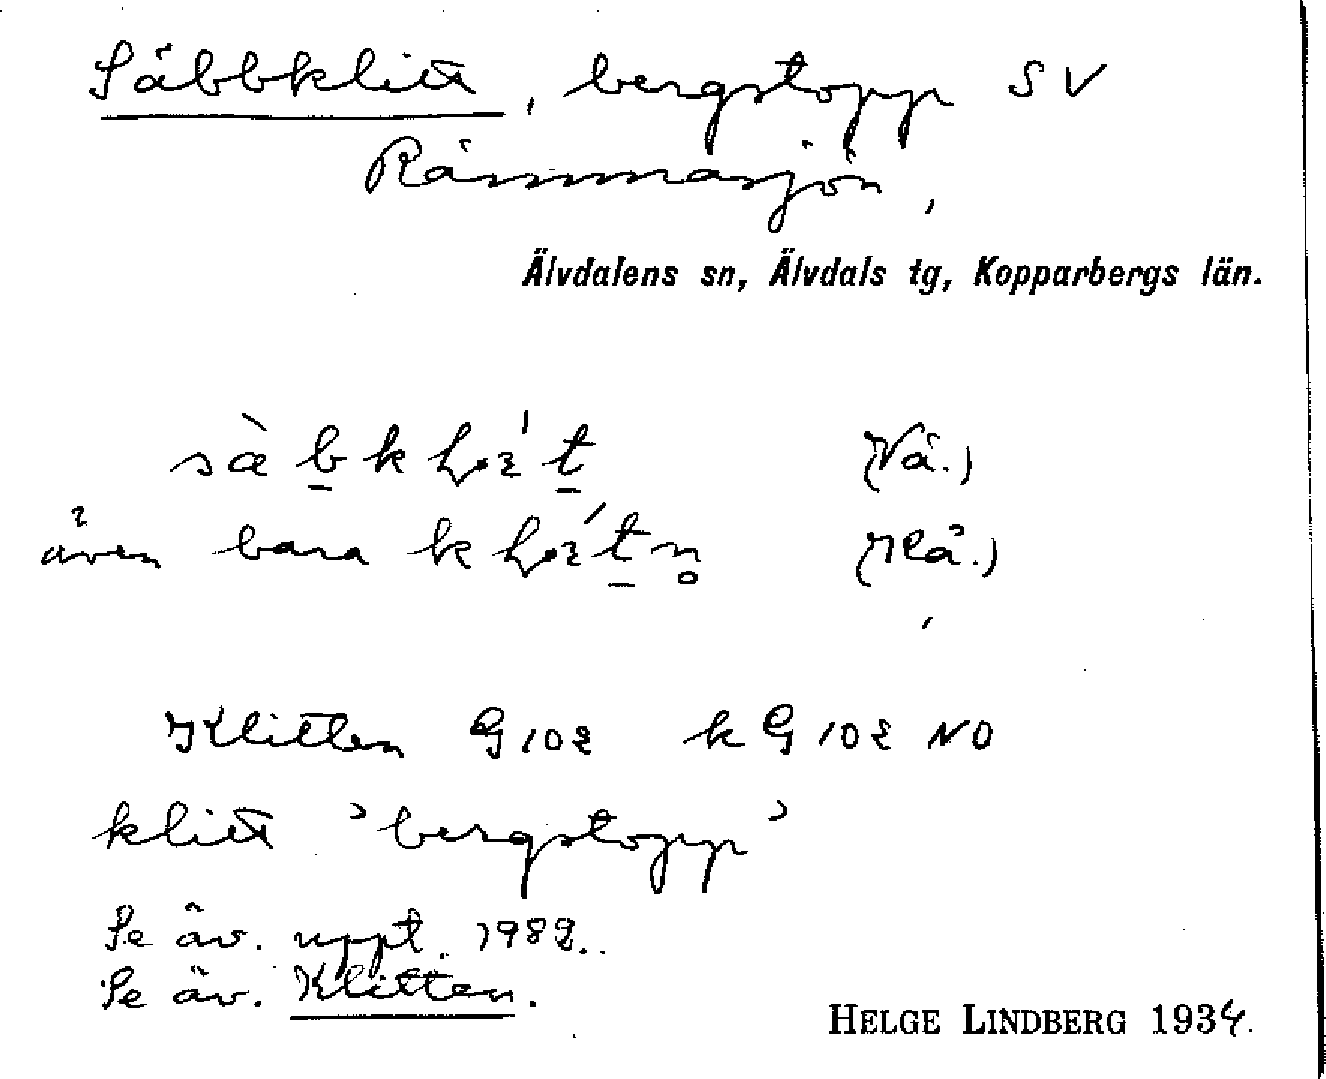 Säbbklitt, bergstopp SV
Rämmasjön,
Älvdalens sn, Älvdals tg, Kopparbergs län.
(Vå.)
även bara (Kå.)
Klitten G102 k G102 NO
klitt 'bergstopp'
Se äv. uppt. 1982.
Se äv. Klitten.
HELGE LINDBERG 1934.